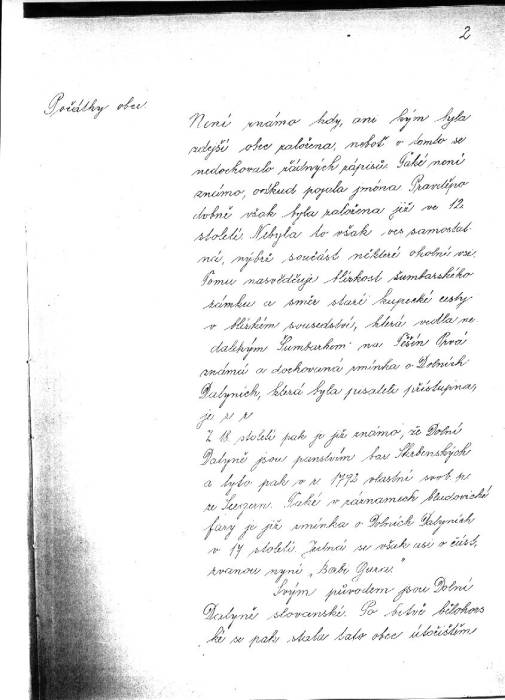 2
Počátky obce.
Není známo kdy, ani kým byla
zdejší obec založena, neboť o tomto se
nedochovalo řádných zápisů. Také není
známo, odkud pojala jména. Pravděpo
dobně však byla založena již ve 12.
století. Nebyla to však ves samostat
ná, nýbrž součást některé okolní vsi.
Tomu nasvědčuje blízkost šumbarského
zámku a směr staré kupecké cesty
v blízkém sousedství, která vedla ne
dalekým Šumbarkem na Těšín. Prvá
známá a dochovaná zmínka o Dolních
Datyních, která byla pisateli přístupna,
je z r
Z 18. století pak je již známo, že Dolní
Datyně jsou panstvím bar. Skrbenských
a tyto pak v r. 1792 vlastní svob. p.
ze Seezern. Také v záznamech bludovické
fary je již zmínka o Dolních Datyních
v 17 století. Jedná se však asi o část,
zvanou nyní „Babi Gura."
Svým původem jsou Dolní
Datyně slovanské. Po bitvě bělohors
ké se pak stala tato obec útočištěm